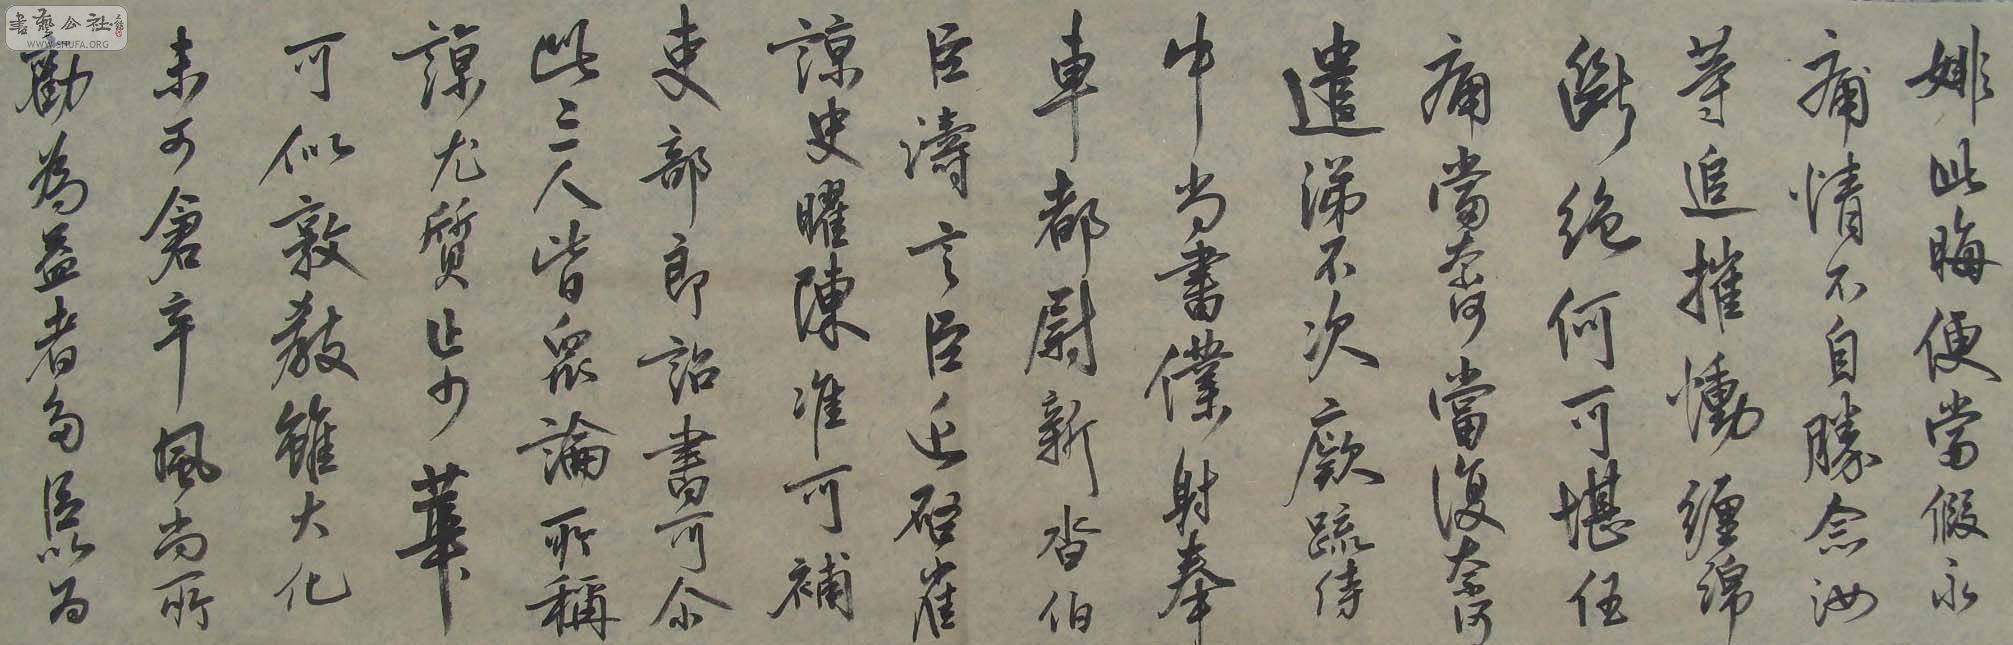 書藝公社
WWW.SHUFA.ORG
娣此晦便當假永
痛情不自勝念汝
等追摧慟纏綿
斷絶何可堪任
痛當奈何當復奈何
遣涕不次廞疏侍
中尚書僕射奉
車都尉新沓伯
臣濤言臣近啓崔
諒史曜陳准可補
吏部郎詔書可尒
此三人皆衆論所稱
諒尤質止少華
可以敦教雖大化
未可倉卒風尚所
勸為益者多臣以為